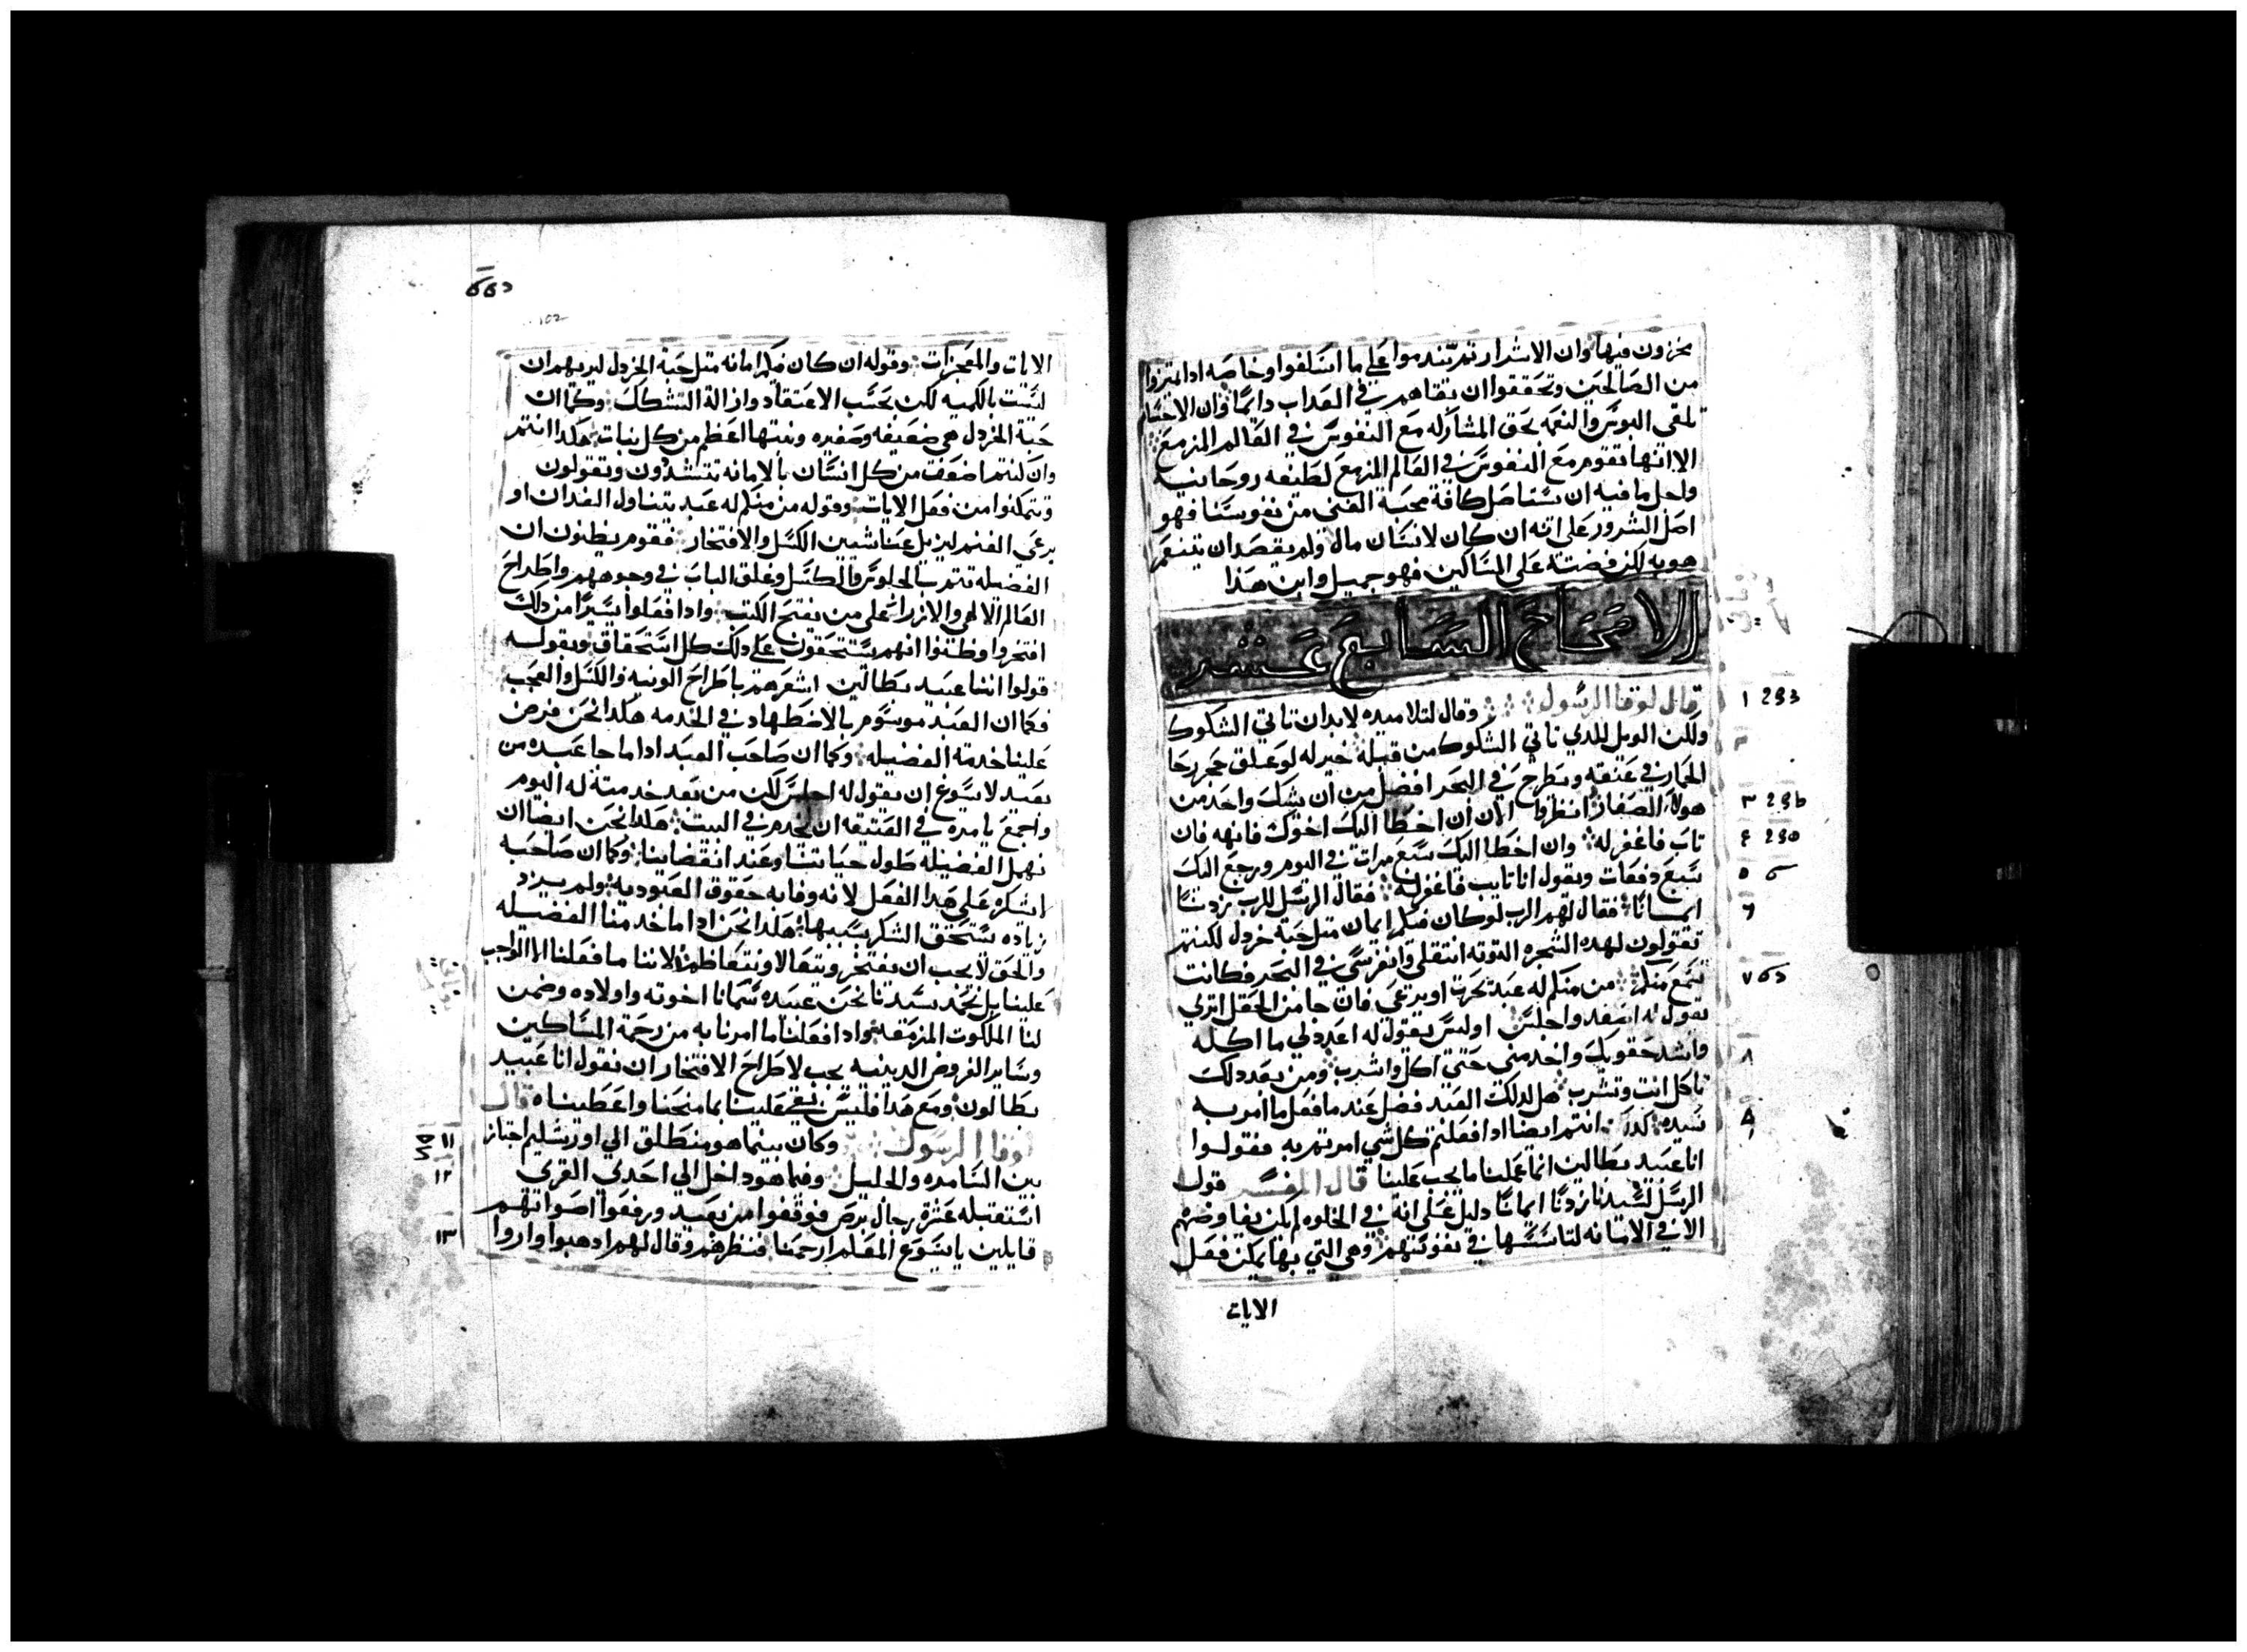 يحزون فيها وان الاشرار ثم يندموا على ما اسلفوا وخاصه ادا ميزوا
من الصالحين وتحققوا ان بقاهم في العداب دايما وان الاجسام
تلقى البوس والنعمه بحق المشاركه مع النفوس في العالم المزمع
الا انها تقوم مع النفوس في العالم المزمع لطيفه روحانيه
واجل ما فيه ان تستاصل كافة محبة الغنى من نفوسنا فهو
اصل الشرور على انه ان كان لانسان مال ولم يقصد ان يتنعم
هو به لكن فضته على المساكين فهو جميل واين هدا
الاصحاح السابع عشر
قال لوقا الرسول وقال لتلاميده لابد ان تاتي الشكوك
ولكن الويل للدي تاتي الشكوك من قبله خير له لو علق حجر رحا
الحمار في عنقه ويطرح في البحر افضل من ان يشكك واحد من
هولا الصغار انظروا الان ان اخطا اليك اخوك فانهه فان
تاب فاغفر له وان اخطا اليك سبع مرات في اليوم ورجع اليك
سبع دفعات ويقول انا تايب فاغفر له فقال الرسل للرب زدنا
ايمانا فقال لهم الرب لو كان فيكم ايمان مثل حبة خردل لكنتم
تقولون لهده الشجره التوته انتقلي وانغرسي في البحر فكانت
تسمع منكم من منكم له عبد يحرث او يرعى فان جا من الحقل اترى
يقول له اصعد واجلس او ليس يقول له اعدد لي ما اكله
واشدد حقويك واخدمني حتى اكل واشرب ومن بعد دلك
تاكل انت وتشرب هل لدلك العبد فضل عند ما فعل ما امر به
سيده كدا انتم ايضا ادا فعلتم كل شي امرتم به فقولوا
انا عبيد بطالين انما عملنا ما يجب علينا قال المفسر قول
الرسل لسيدنا زدنا ايمانا دليل على انه في الخلوه لم يكن يفاوضهم
الا في الامانه لتاسسها في نفوسهم وهى التي بها يمكن فعل
الايات
١ 293
٢
٣ 296
٤ 290
٥
٦
٧
٨
٩
102
الايات والمعجزات وقوله ان كان فيكم امانه متل حبة الخردل ليريهم ان
ليست بالكميه لكن بحسب الاعتقاد وازالة التشكك وكما ان
حبة الخردل هى ضعيفه وصغيره ونبتها اعظم من كل نبات هكدا انتم
وان كنتم اضعف من كل انسان بالامانه تتشددون وتقولون
وتتمكنوا من فعل الايات وقوله من منكم له عبد يتناول الفدان او
يرعى الغنم ليزيل عنا شيين الكسل والافتخار فقوم يظنون ان
الفضيله تتم بالجلوس والكسل وغلق الباب في وجوههم واطراح
العالم الالهي والازراء على من يفتح الكتب وادا فعلوا يسيرا من دلك
افتخروا وظنوا انهم يستحقون على دلك كل استحقاق وبقوله
قولوا اننا عبيد بطالين اشعرهم باطراح الونيه والكسل والعجب
فكما ان العبد موسوم بالاضطهاد في الخدمه هكدا نحن فرض
علينا خدمة الفضيله وكما ان صاحب العبد ادا ما جا عبده من
بعيد لا يسوغ ان يقول له اجلس لكن من بعد خدمته له اليوم
واجمع يامره في العتيقه ان يخدم في البيت هكدا نحن ايضا ان
نهمل الفضيله طول حياتنا وعند انقضاينا وكما ان صاحبه
لا يشكره على هدا الفعل لانه وفا به حقوق العبوديه ولم يزد
زياده يستحق الشكر بسببها هكدا نحن ادا ما خدمنا الفضيله
والحق لا يجب ان نفتخر ونتعالا ونتعاظم لاننا ما فعلنا الا الواجب
علينا بل نحمد سيدنا نحن عبيده سمانا اخوته واولاده وضمن
لنا الملكوت المزمعه وادا فعلنا ما امرنا به من رحمة المساكين
وساير الفروض الدينيه يجب لاطراح الافتخار ان نقول انا عبيد
بطالون ومع هدا فليس بقي علينا بما منحنا واعطيناه قال
لوقا الرسول وكان بينما هو منطلق الي اورشليم اجتاز
بين السامره والجليل وفيما هو داخل الي احدى القرى
استقبله عشرة رجال برص فوقفوا من بعيد ورفعوا اصواتهم
قايلين يا يسوع المعلم ارحمنا فنظرهم وقال لهم ادهبوا واروا
١١
١٢
١٣